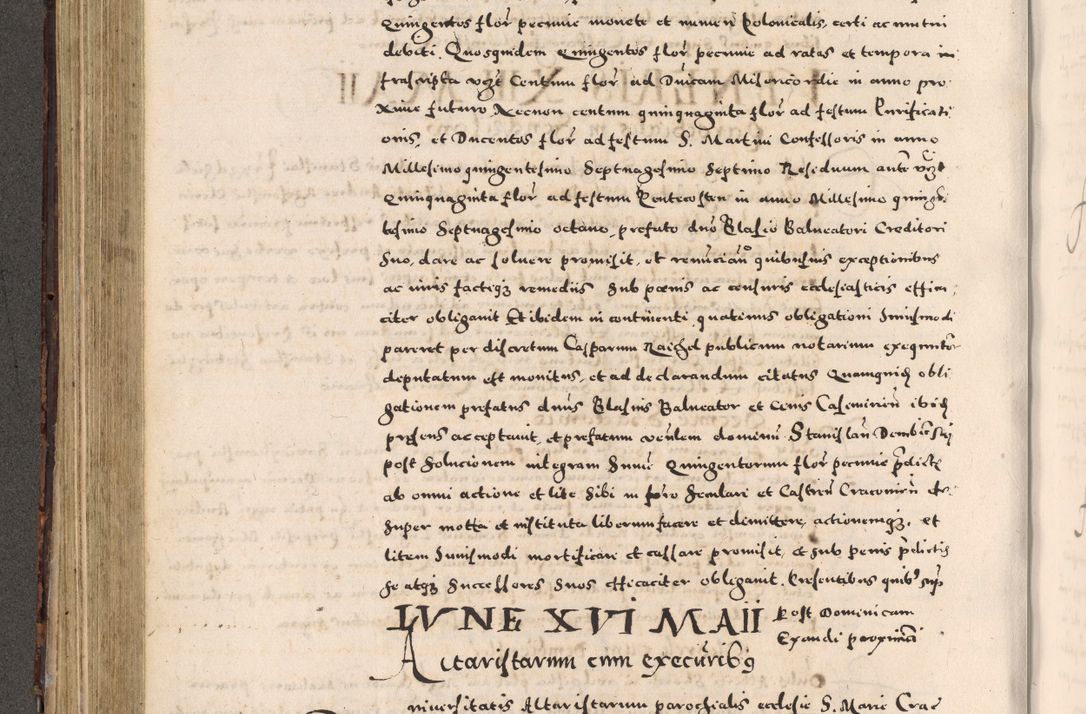 Quingentos flor pecunie monete et numeri Polonicalis, certi ac mutui
debiti. Quosquidem Quingentos flor pecunie ad ratas et tempora in
frascripta vzt Centum flor ad Dnicam Misericordie in anno pro
xime futuro Necnon centum quinquaginta flor ad festum Purificati
onis, et Ducentos flor ad festum S. Martini Confessoris in anno
Millesimo quingentesimo Septuagesimo Septimo Residuum autē vzt
Quinquaginta flor ad festum Pentecosten in anno Millesimo quinge
tesimo Septuagesimo octavo, prefato dno Blasio Balneatori Creditori
suo, dare ac soluere promisit, et renunciaū quibusuis exceptionibus
ac iuris factiqz remediis Sub poenis ac censuris ecclesiasticis effica
citer obligauit Et ibidem in continenti quatinus obligationi huiusmodi
pareret per discretum Casparum Raichel publicum notarium exequutor
deputatum est monitus, et ad declarandum citatus Quamquidē obli
gationem prefatus dnus Blasius Balneator et Ciuis Casimirien ibidē
presens acceptauit, et prefatum venlem dominū Stanislaū Dembinski
post Solucionem integram Summē Quingentorum flor pecunie pdicte
ab omni actione et lite sibi in foro Seculari et Castren Cracouien
super motta et instituta liberum facere et dimittere, actionemqz et
litem huiusmodi mortificare et cassare promisit, et sub penis pdictis
se atqz Successores suos efficaciter obligauit. Presentibus quibus sup
LVNE XVI MAII Post Dominicam
Exaudi proximā
Altaristarum cum executibus
niuersitatis Altaristarum parochialis ecclesie S. Marie Crac